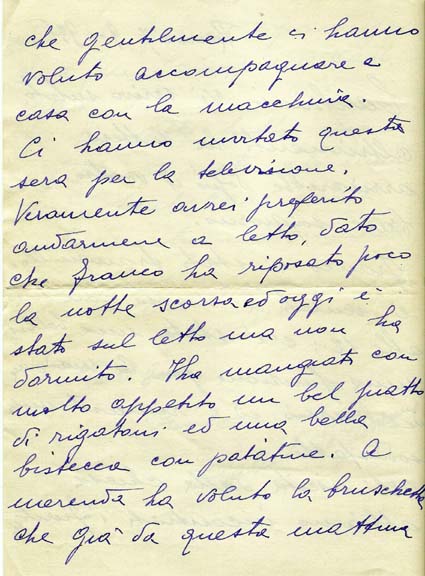 che gentilmente ci hanno
voluto accompagnare a
casa con la macchina.
Ci hanno invitato questa
sera per la televisione.
Veramente avrei preferito
andarmene a letto, dato
che Franco ha riposato poco
la notte scorsa ed oggi è
stato sul letto ma non ha
dormito. Ha mangiato con
molto appetito un bel piatto
di rigatoni ed una bella
bistecca con patatine. A
merenda ha voluto la bruschetta
che già da questa mattina